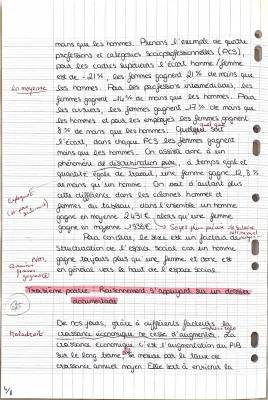 moins que les hommes. Prenons l'exemple de quatre
professions et catégories socioprofessionnelles (PCS),
pour les cadres supérieurs l'écart homme/femme
est de -21%, les femmes gagnent 21% de moins que
les hommes. Pour les professions intermédiaires, les
femmes gagnent -14% de moins que les hommes. Pour
les ouvriers, les femmes gagnent -17% de moins que
les hommes et pour les employés les femmes gagnent
8% de moins que les hommes. Quelque soit
l'écart, dans chaque PCS les femmes gagnent
moins que les hommes. On assiste donc à un
phénomène de discrimination pure, à temps égal et
qualité égale de travail, une femme gagne 12,8%
de moins qu'un homme. On voit d'autant plus
cette différente dans les colonnes hommes et
femmes du tableau, dans l'ensemble un homme
gagne en moyenne 2431€ alors qu'une femme
gagne en moyenne 1938€
Soyez plus
Pour conclure, le sexe est un facteur de
structuration de l'espace social car un homme
gagne toujours plus qu'une femme et donc est
en général vers le haut de l'espace social.
La moyenne
Non,
certaines
femmes
gagnent
Troisième partie Raisonnement s'appuyant sur un dossier
documentaire
De nos jours, grâce à différents facteurs la
croissance économique
La
croissance économique c'est l'augmentation du PIB
sur le long terme se mesure par le taux de
croissance annuel moyen. Elle sert à enrichir la
Maladroit